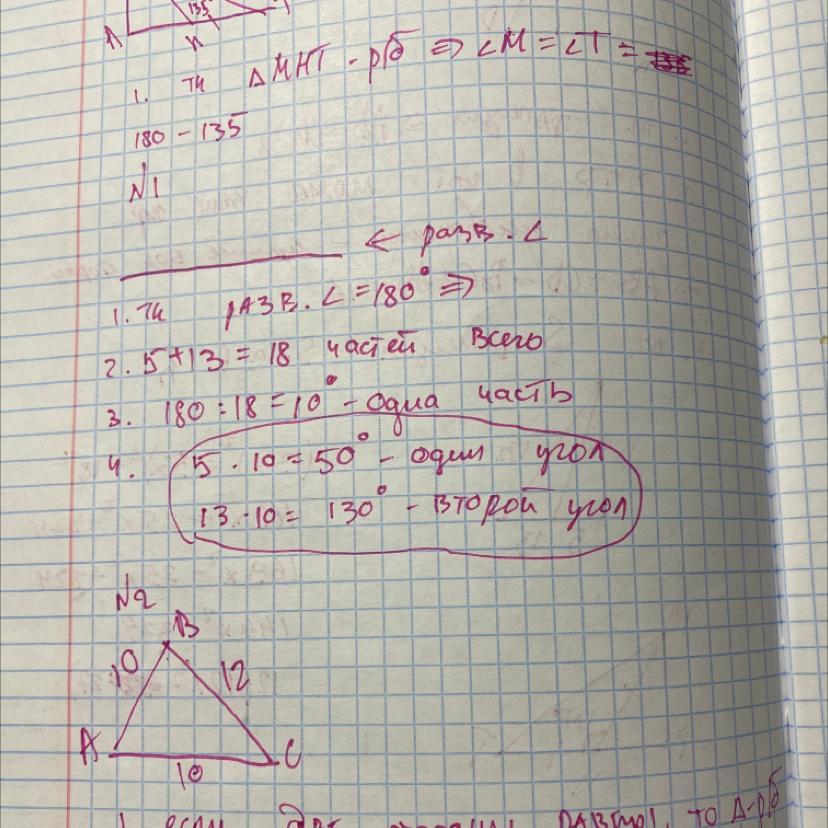 135
A
1. тк ΔМНТ - рб ⇒ ∠М = ∠Т =
180 - 135
№1
← разв. ∠
1. тк разв. ∠ = 180° ⇒
2. 5+13 = 18 частей всего
3. 180 : 18 = 10° - одна часть
4. 5 · 10 = 50° - один угол
13 · 10 = 130° - второй угол
№2
B
10 12
A C
10
1. если две равны, то Δ-рб